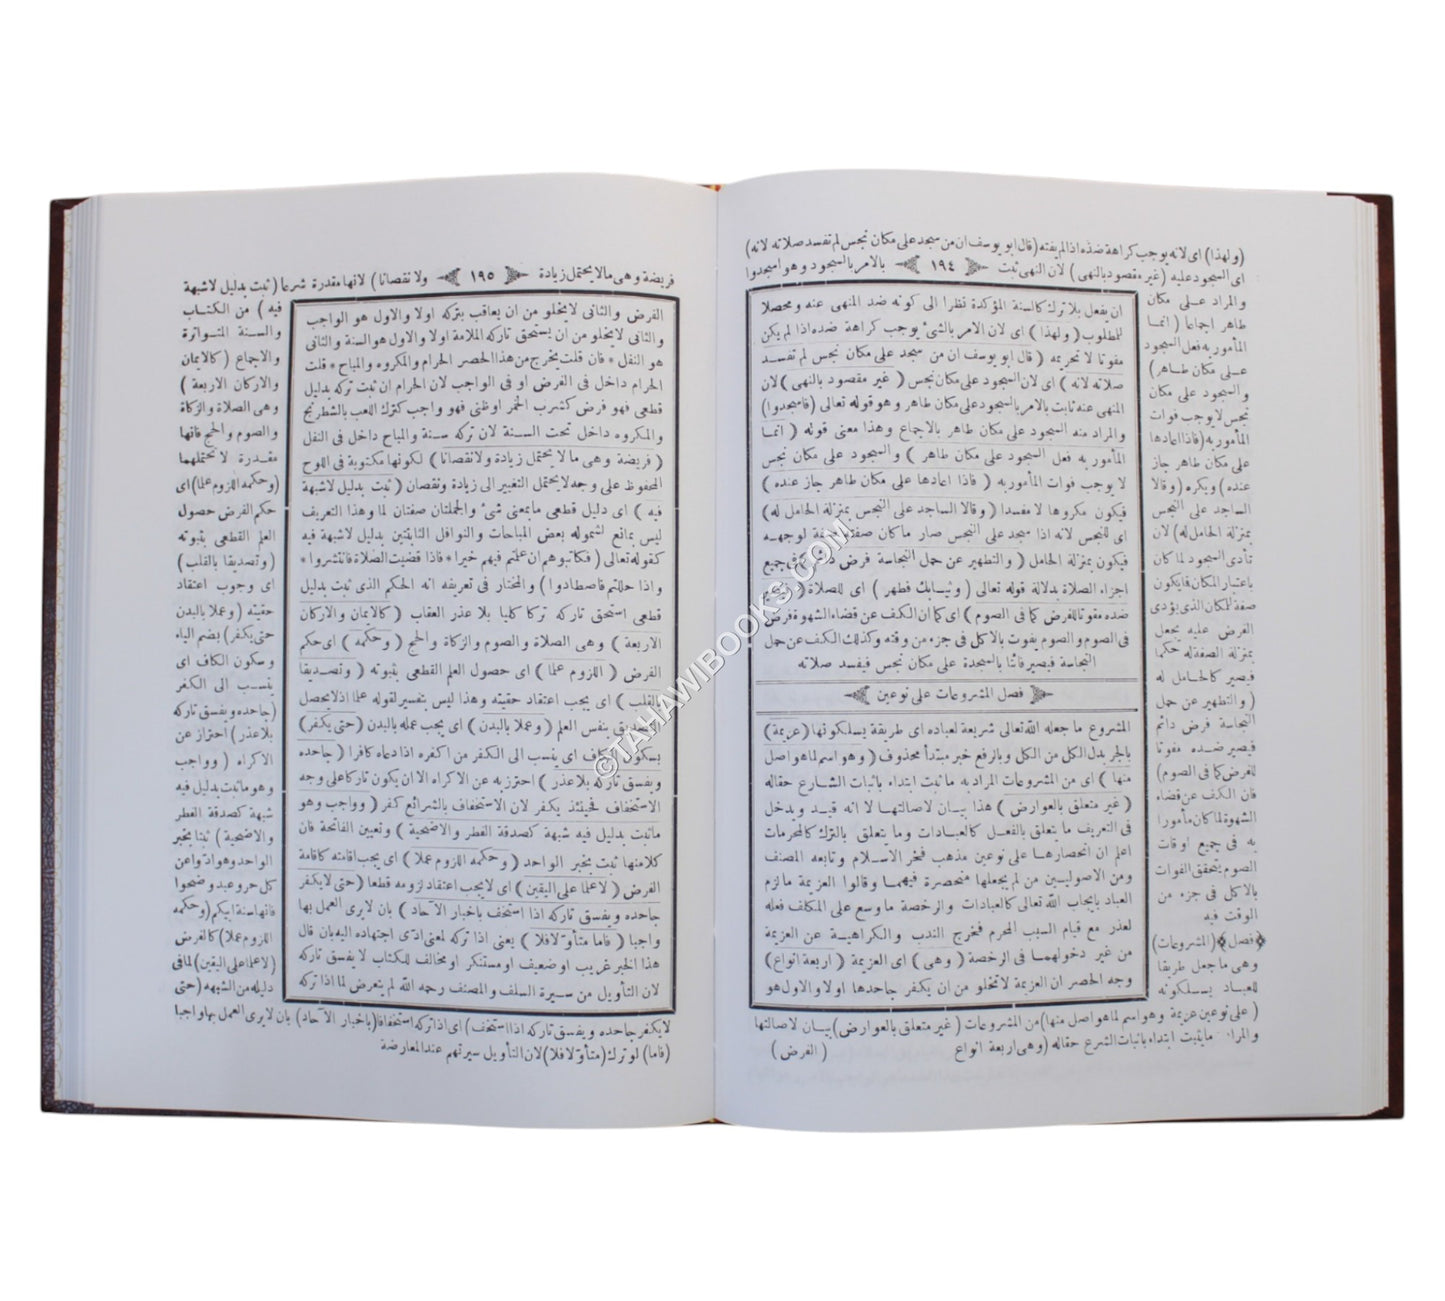 (ولهذا) اى لانه يوجب كراهة ضده اذا لم يفته (قال ابو يوسف ان من سجد على مكان نجس لم تفسد صلاته لانه)
اى السجود عليه (غير مقصود بالنهى) لان النهى ثبت ١٩٤ بالامر بالسجود وهو اسجدوا
والمراد على مكان
طاهر اجماعا (انما
المأمور به فعل السجود
على مكان طاهر)
والسجود على مكان
نجس لا يوجب فوات
المأمور به (فاذا اعادها
على مكان طاهر جاز
عنده) ويكره (وقالا
الساجد على النجس
بمنزلة الحامل له) لان
تأدى السجود لما كان
باعتبار المكان فايكون
صفة للمكان الذى يؤدى
الفرض عليه يجعل
بمنزلة الصفة له حكما
فيصير كالحامل له
(والتطهير عن حمل
النجاسة فرض دائم
فيصير ضده مفوتا
للفرض كما فى الصوم)
فان الكف عن قضاء
الشهوة لما كان مأمورا
به فى جميع اوقات
الصوم يتحقق الفوات
بالاكل فى جزء من
الوقت فيه
فصل (المشروعات)
وهى ما جعل طريقا
للعباد يسلكونه
(على نوعين عزيمة وهو اسم لما هو اصل منها) من المشروعات (غير متعلق بالعوارض) بيان لاصالتها
والمراد ما يثبت ابتداء باثبات الشرع حقاله (وهى اربعة انواع
(الفرض)
ان يفعل بلا ترك كالسنة المؤكدة نظرا الى كونه ضد المنهى عنه ومحصلا
للمطلوب (ولهذا) اى لان الامر بالشئ يوجب كراهة ضده اذا لم يكن
مفوتا لا تحريمه (قال ابو يوسف ان من سجد على مكان نجس لم تفسد
صلاته لانه) اى لان السجود على مكان نجس (غير مقصود بالنهى) لان
المنهى عنه ثابت بالامر بالسجود على مكان طاهر وهو قوله تعالى (فاسجدوا)
والمراد منه السجود على مكان طاهر بالاجماع وهذا معنى قوله (انما
المأمور به فعل السجود على مكان طاهر) والسجود على مكان نجس
لا يوجب فوات المأمور به (فاذا اعادها على مكان طاهر جاز عنده)
فيكون مكروها لا مفسدا (وقالا الساجد على النجس بمنزلة الحامل له)
اى للنجس لانه اذا سجد على النجس صار ما كان صفة لوجهه
فيكون بمنزلة الحامل (والتطهير عن حمل النجاسة فرض دائم) فى جميع
اجزاء الصلاة بدلالة قوله تعالى (وثيابك فطهر) اى للصلاة (فيصير
ضده مفوتا للفرض كما فى الصوم) اى كما ان الكف عن قضاء الشهوة فرض
فى الصوم والصوم يفوت بالاكل فى جزء من وقته وكذلك الكف عن حمل
النجاسة فيصير فائتا بالسجدة على مكان نجس فيفسد صلاته
فصل المشروعات على نوعين
المشروع ما جعله الله تعالى شريعة لعباده اى طريقة يسلكونها (عزيمة)
بالجر بدل الكل من الكل وبالرفع خبر مبتدأ محذوف (وهو اسم لما هو اصل
منها) اى من المشروعات المراد به ما ثبت ابتداء باثبات الشارع حقاله
(غير متعلق بالعوارض) هذا بيان لاصالتها لا انه قيد ويدخل
فى التعريف ما يتعلق بالفعل كالعبادات وما يتعلق بالترك كالمحرمات
اعلم ان انحصارها على نوعين مذهب فخر الاسلام وتابعه المصنف
ومن الاصوليين من لم يجعلها منحصرة فيهما وقالوا العزيمة ما لزم
العباد بايجاب الله تعالى كالعبادات والرخصة ما وسع على المكلف فعله
لعذر مع قيام السبب المحرم فخرج الندب والكراهية عن العزيمة
من غير دخولهما فى الرخصة (وهى) اى العزيمة (اربعة انواع)
وجه الحصر ان العزيمة لا تخلو من ان يكفر جاحدها اولا والاول هو
فريضة وهى مالا يحتمل زيادة ١٩٥ ولا نقصانا) لانها مقدرة شرعا (ثبت بدليل لا شبهة
فيه) من الكتاب
والسنة المتواترة
والاجماع (كالايمان
والاركان الاربعة)
وهى الصلاة والزكاة
والصوم والحج فانها
مقدرة لا تحتملهما
(وحكمه اللزوم علما) اى
حكم الفرض حصول
العلم القطعى بثبوته
(وتصديقا بالقلب)
اى وجوب اعتقاد
حقيته (وعملا بالبدن
حتى يكفر) بضم الياء
وسكون الكاف اى
ينسب الى الكفر
(جاحده ويفسق تاركه
بلا عذر) احتراز عن
الاكراه (وواجب
وهو ما ثبت بدليل فيه
شبهة كصدقة الفطر
والاضحية) ثبتا بخبر
الواحد وهو ادوا عن
كل حر وعبد وضحوا
فانها سنة ابيكم (وحكمه
اللزوم عملا) كالفرض
(لا علما على اليقين) لما فى
دليله من الشبهه (حتى
لا يكفر جاحده ويفسق تاركه اذا استخف) اى اذا تركه استخفافا (باخبار الآحاد) بان لا يرى العمل بها واجبا
(فاما) لو ترك (متأولا فلا) لان التأويل سيرتهم عند المعارضة
الفرض والثانى لا يخلو من ان يعاقب بتركه اولا والاول هو الواجب
والثانى لا يخلو من ان يستحق تاركه الملامة اولا والاول هو السنة والثانى
هو النفل * فان قلت يخرج من هذا الحصر الحرام والمكروه والمباح * قلت
الحرام داخل فى الفرض او فى الواجب لان الحرام ان ثبت تركه بدليل
قطعى فهو فرض كشرب الخمر او ظنى فهو واجب كترك اللعب بالشطرنج
والمكروه داخل تحت السنة لان تركه سنة والمباح داخل فى النفل
(فريضة وهى ما لا يحتمل زيادة ولا نقصانا) لكونها مكتوبة فى اللوح
المحفوظ على وجه لا يحتمل التغيير الى زيادة ونقصان (ثبت بدليل لا شبهة
فيه) اى دليل قطعى ما بمعنى شئ والجملتان صفتان لما وهذا التعريف
ليس بمانع لشموله بعض المباحات والنوافل الثابتين بدليل لا شبهة فيه
كقوله تعالى (فكاتبوهم ان علمتم فيهم خيرا * فاذا قضيت الصلاة فانتشروا *
واذا حللتم فاصطادوا) والمختار فى تعريفه انه الحكم الذى ثبت بدليل
قطعى استحق تاركه تركا كليا بلا عذر العقاب (كالايمان والاركان
الاربعة) وهى الصلاة والصوم والزكاة والحج (وحكمه) اى حكم
الفرض (اللزوم علما) اى حصول العلم القطعى بثبوته (وتصديقا
بالقلب) اى يجب اعتقاد حقيته وهذا ليس بتفسير لقوله علما اذ لا يحصل
التصديق بنفس العلم (وعملا بالبدن) اى يجب عمله بالبدن (حتى يكفر)
بسكون الكاف اى ينسب الى الكفر من اكفره اذا دعاه كافرا (جاحده
ويفسق تاركه بلا عذر) احترز به عن الاكراه الا ان يكون تاركا على وجه
الاستخفاف فحينئذ يكفر لان الاستخفاف بالشرائع كفر (وواجب وهو
ما ثبت بدليل فيه شبهة كصدقة الفطر والاضحية) وتعيين الفاتحة فان
كلا منها ثبت بخبر الواحد (وحكمه اللزوم عملا) اى يجب اقامته كاقامة
الفرض (لا علما على اليقين) اى لا يجب اعتقاد لزومه قطعا (حتى لا يكفر
جاحده ويفسق تاركه اذا استخف باخبار الآحاد) بان لا يرى العمل بها
واجبا (فاما متأولا فلا) يعنى اذا تركه لمعنى ادى اجتهاده اليه بان قال
هذا الخبر غريب او ضعيف او مستنكر او مخالف للكتاب لا يفسق تاركه
لان التأويل من سيرة السلف والمصنف رحمه الله لم يتعرض لما اذا تركه
©TAHAWIBOOKS.COM